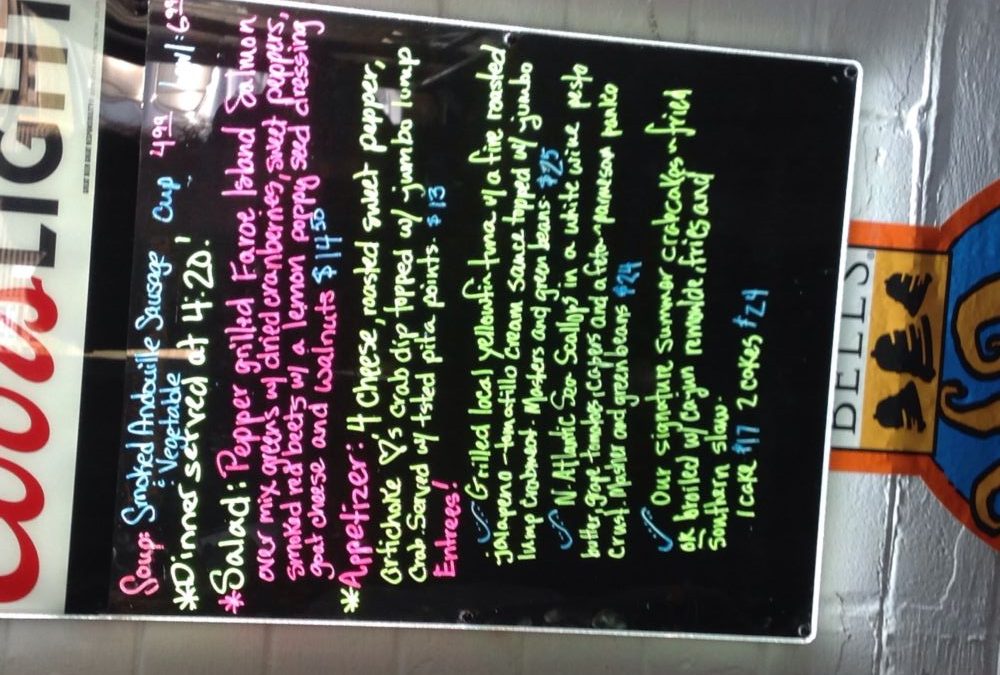 Coors LIGHT
GREAT BEER GREAT RESPONSIBILITY
Soup: Smoked Andouille Sausage Cup 4.99 bowl: 6.99
& Vegetable
*Dinner served at 4:20!
*Salad: Pepper grilled Faroe Island Salmon
over mix greens w/ dried cranberries, sweet peppers,
smoked red beets w/ a lemon poppy seed dressing
goat cheese and walnuts $14.50
*Appetizer: 4 cheese, roasted sweet pepper,
artichoke ♡'s crab dip topped w/ jumbo lump
Crab. Served w/ tsted pita points. $13
Entrees!
Grilled local yellowfin tuna w/ a fire roasted
jalapeno-tomatillo cream sauce topped w/ jumbo
lump crabmeat. Mashers and green beans. $25
N. Atlantic Sea Scallops in a white wine pesto
butter, grape tomatoes, capers and a feta-parmesan panko
crust. Masher and green beans $24
Our signature summer crabcakes - fried
OR broiled w/ cajun remoulde, fries and
southern slaw.
1 cake $17 2 cakes $24
BELL'S